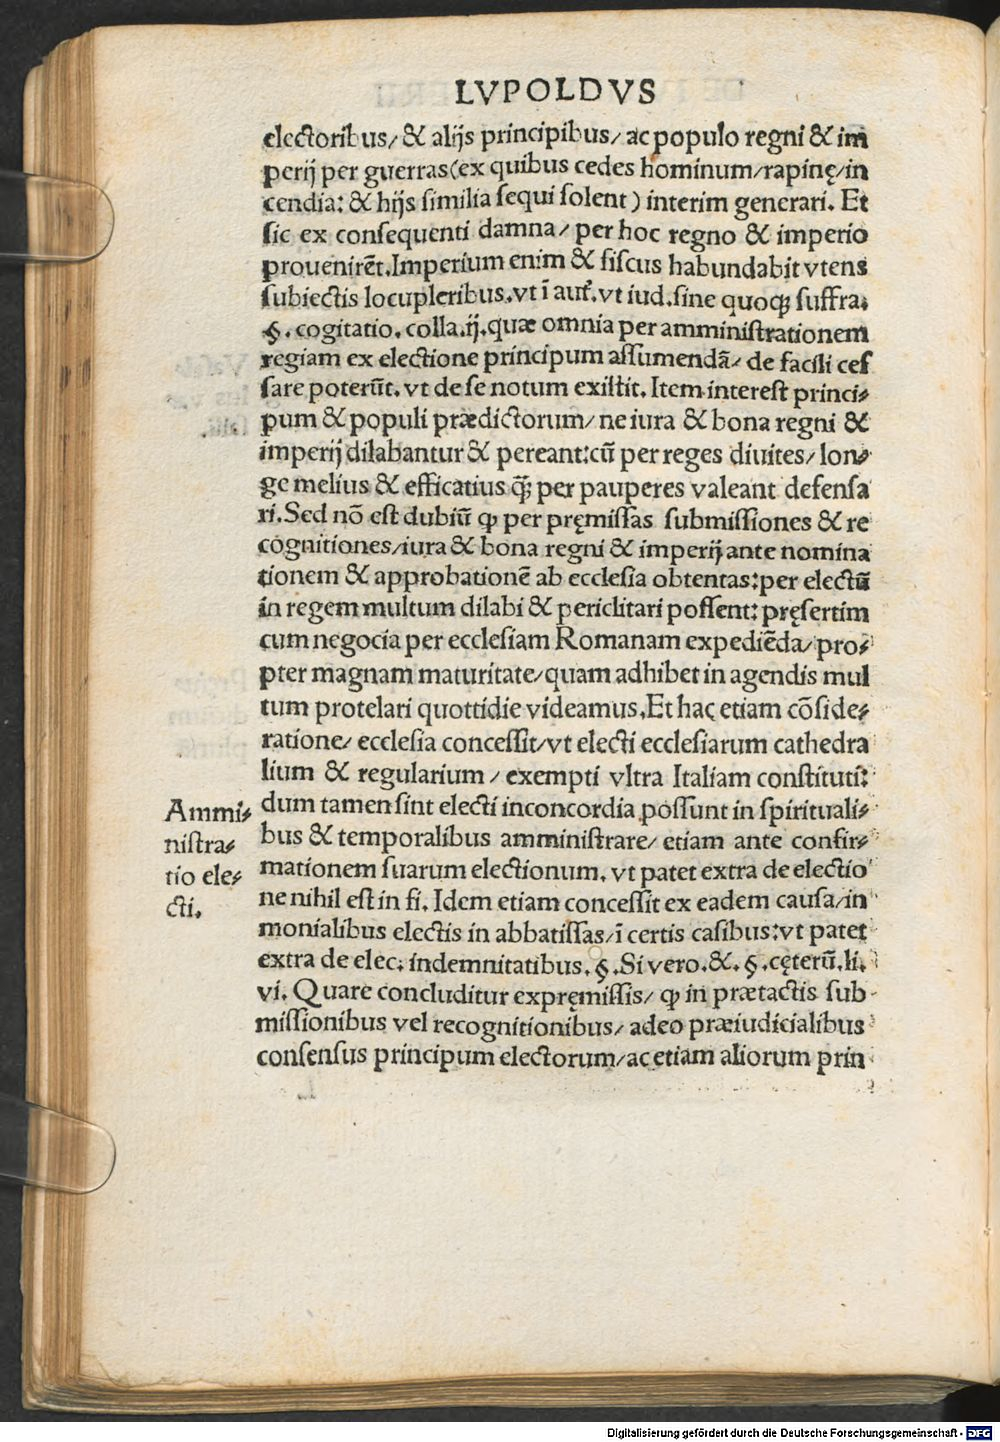 LVPOLDVS
electoribus/ & alijs principibus/ ac populo regni & im
perij per guerras(ex quibus cedes hominum/rapinę/in
cendia: & hijs similia sequi solent) interim generari. Et
sic ex consequenti damna/ per hoc regno & imperio
prouenirēt. Imperium enim & fiscus habundabit vtens
subiectis locupleribus. vt ī aut̃. vt iud. sine quoqꝫ suffra.
§. cogitatio. colla. ij. quæ omnia per amministrationem
regiam ex electione principum assumendā/ de facili ces
sare poterūt. vt de se notum existit. Item interest princi⸗
pum & populi prædictorum/ ne iura & bona regni &
imperij dilabantur & pereant: cū per reges diuites/ lon⸗
ge melius & efficatius q̃ꝫ per pauperes valeant defensa
ri. Sed nō est dubiū ꝙ per pręmissas submissiones & re
cognitiones/iura & bona regni & imperij ante nomina
tionem & approbationē ab ecclesia obtentas: per electū
in regem multum dilabi & periclitari possent: pręsertim
cum negocia per ecclesiam Romanam expediēda/ pro⸗
pter magnam maturitate/quam adhibet in agendis mul
tum protelari quottidie videamus. Et hac etiam cōside⸗
ratione/ ecclesia concessit/vt electi ecclesiarum cathedra
lium & regularium / exempti vltra Italiam constituti:
Ammi⸗
nistra⸗
tio ele⸗
cti.
dum tamen sint electi inconcordia possunt in spirituali⸗
bus & temporalibus amministrare/ etiam ante confir⸗
mationem suarum electionum. vt patet extra de electio
ne nihil est in fi. Idem etiam concessit ex eadem causa/in
monialibus electis in abbatissas/ī certis casibus: vt patet
extra de elec. indemnitatibus. §. Si vero. &. §. cęterū. li.
vi. Quare concluditur expręmissis/ ꝙ in prætactis sub
missionibus vel recognitionibus/ adeo præiudicialibus
consensus principum electorum/ac etiam aliorum prin
Digitalisierung gefördert durch die Deutsche Forschungsgemeinschaft - DFG